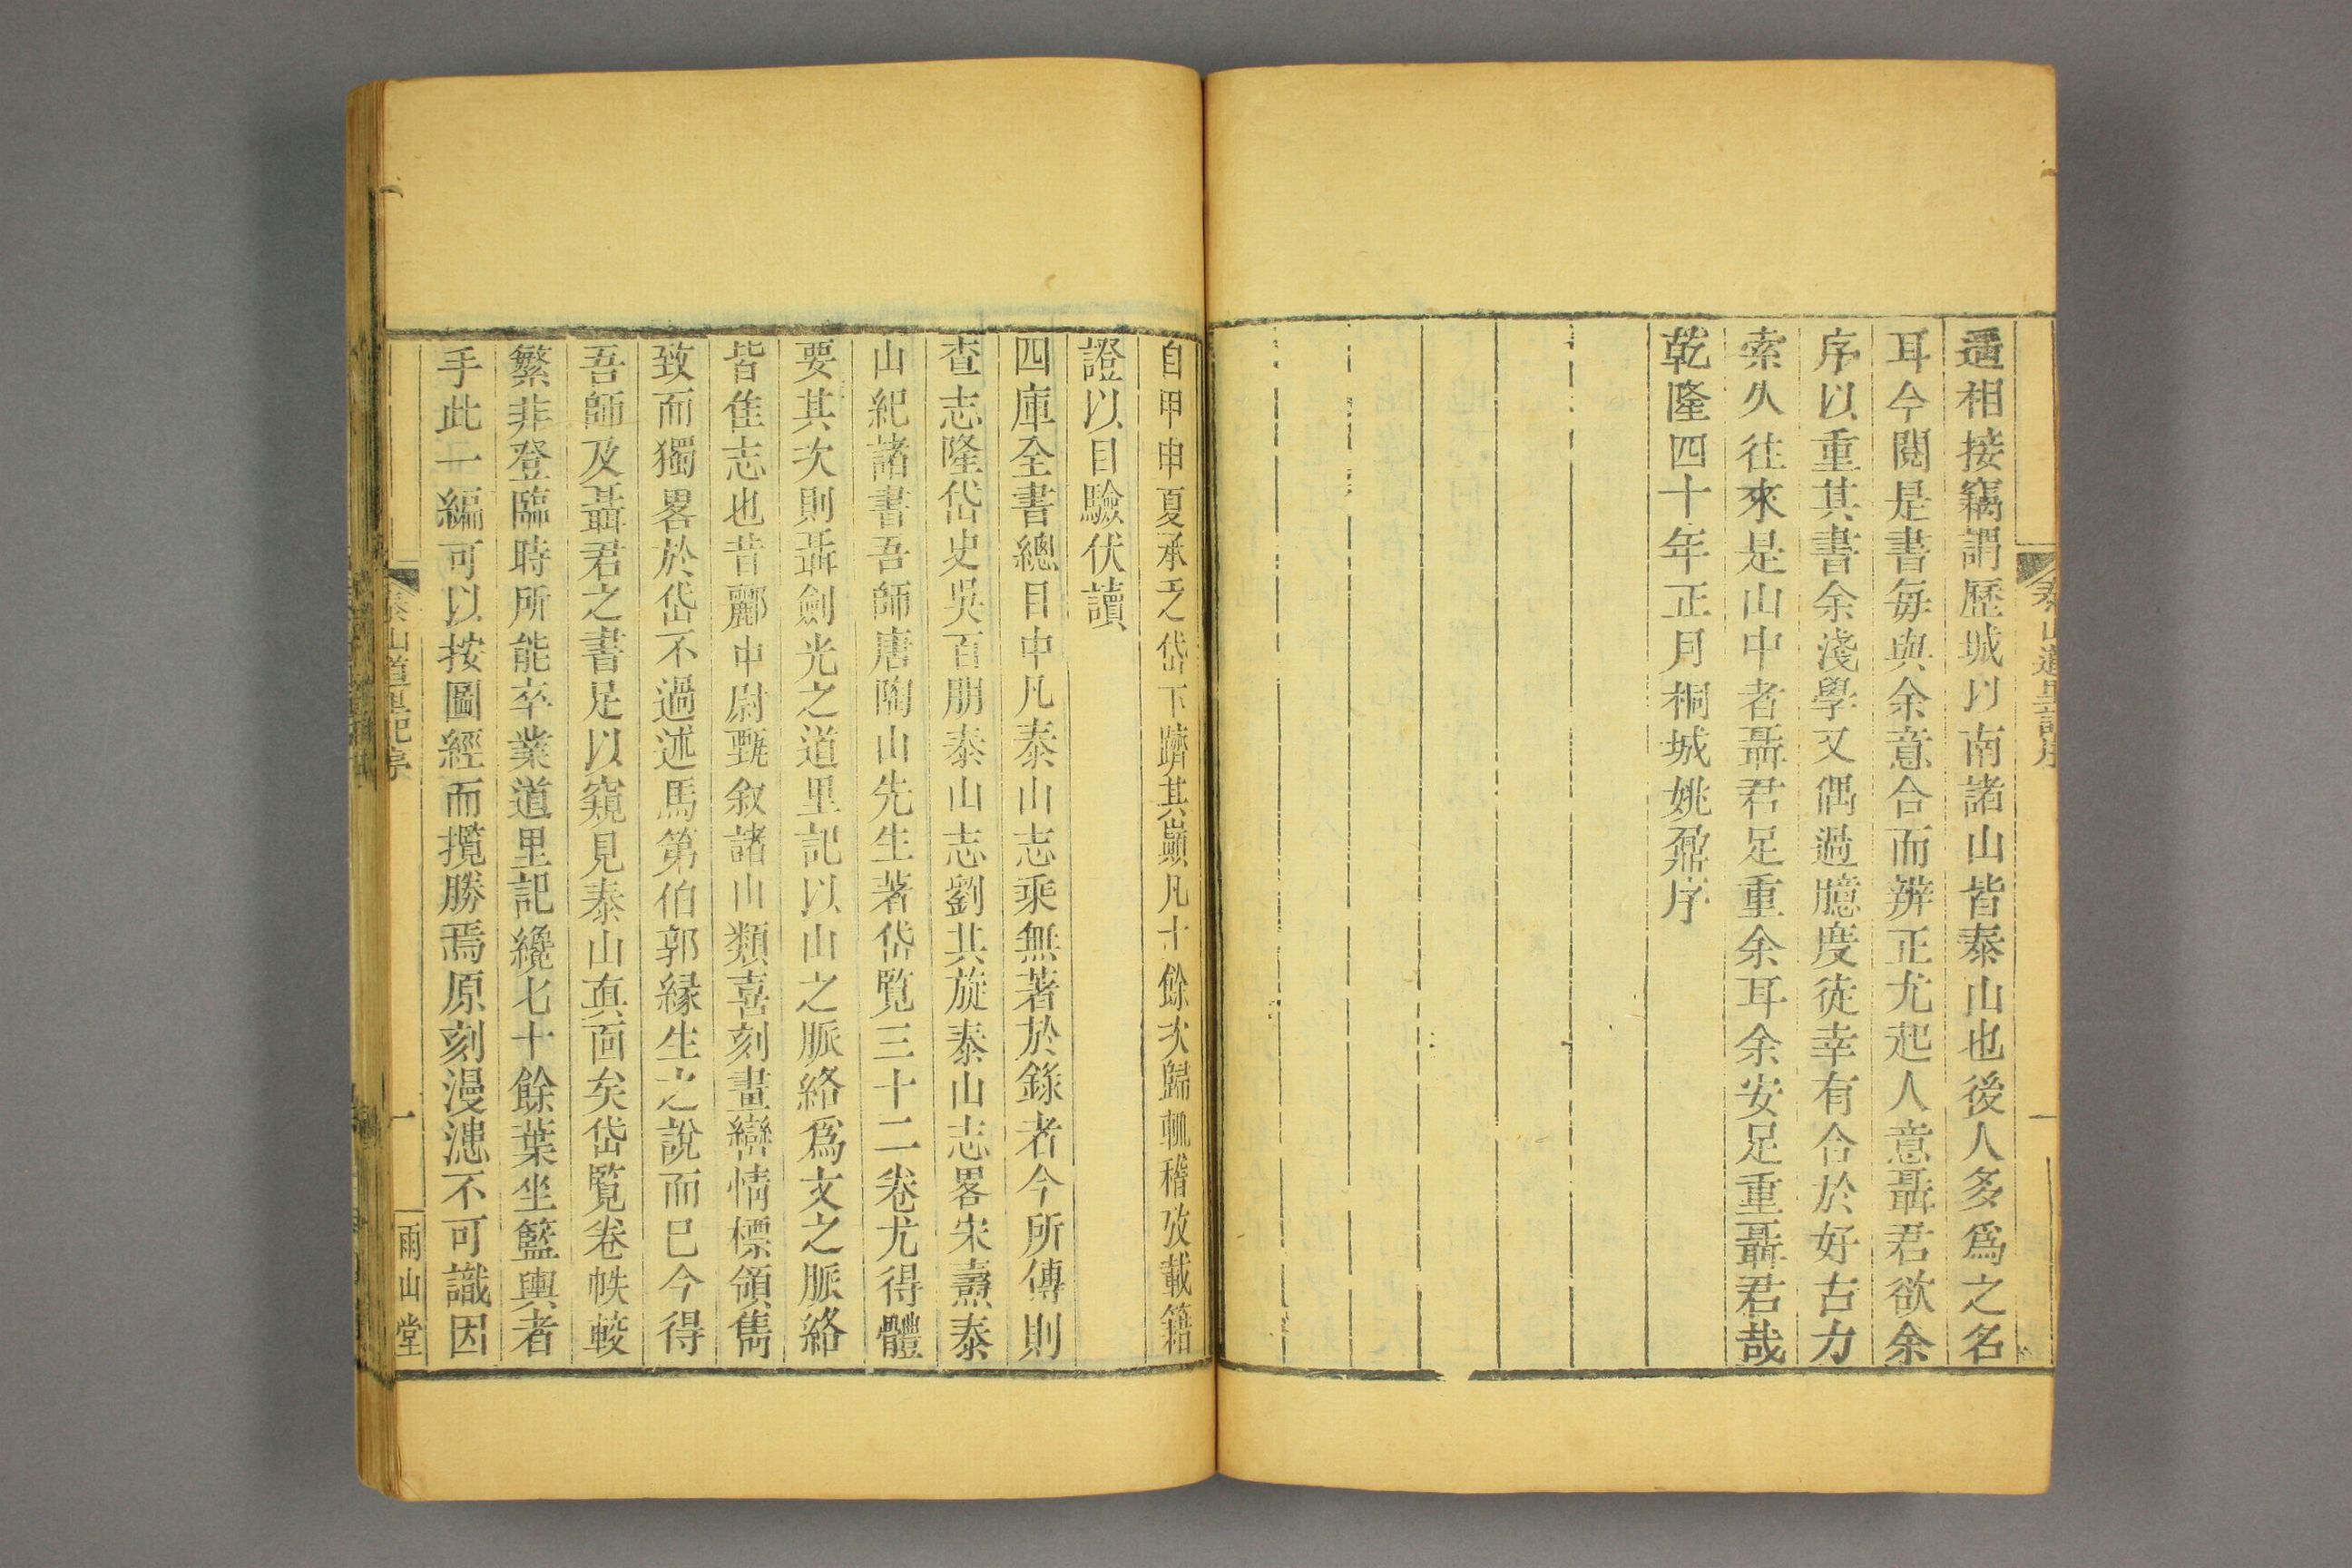 泰山道里記序
一
遥相接竊謂歷城以南諸山皆泰山也後人多爲之名
耳今閱是書每與余意合而辨正尤起人意聶君欲余
序以重其書余淺學又偶過臆度徒幸有合於好古力
索久往來是山中者聶君足重余耳余安足重聶君哉
乾隆四十年正月桐城姚鼐序
自甲申夏承乏岱下躋其巔凡十餘次歸輒稽攷載籍
證以目驗伏讀
四庫全書總目中凡泰山志乘無著於錄者今所傳則
查志隆岱史吳百朋泰山志劉其旋泰山志畧宋燾泰
山紀諸書吾師唐陶山先生著岱覽三十二卷尤得體
要其次則聶劍光之道里記以山之脈絡爲文之脈絡
皆隹志也昔酈中尉甄敘諸山類喜刻畫巒情標領雋
致而獨畧於岱不過述馬第伯郭緣生之說而巳今得
吾師及聶君之書足以窺見泰山真面矣岱覽卷帙較
繁非登臨時所能卒業道里記纔七十餘葉坐籃輿者
手此一編可以按圖經而攬勝焉原刻漫漶不可識因
泰山道里記序
一
雨山堂